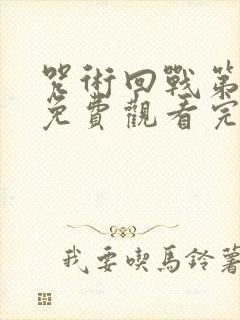 咒術回戰第
免費觀看完
我要喫馬鈴薯